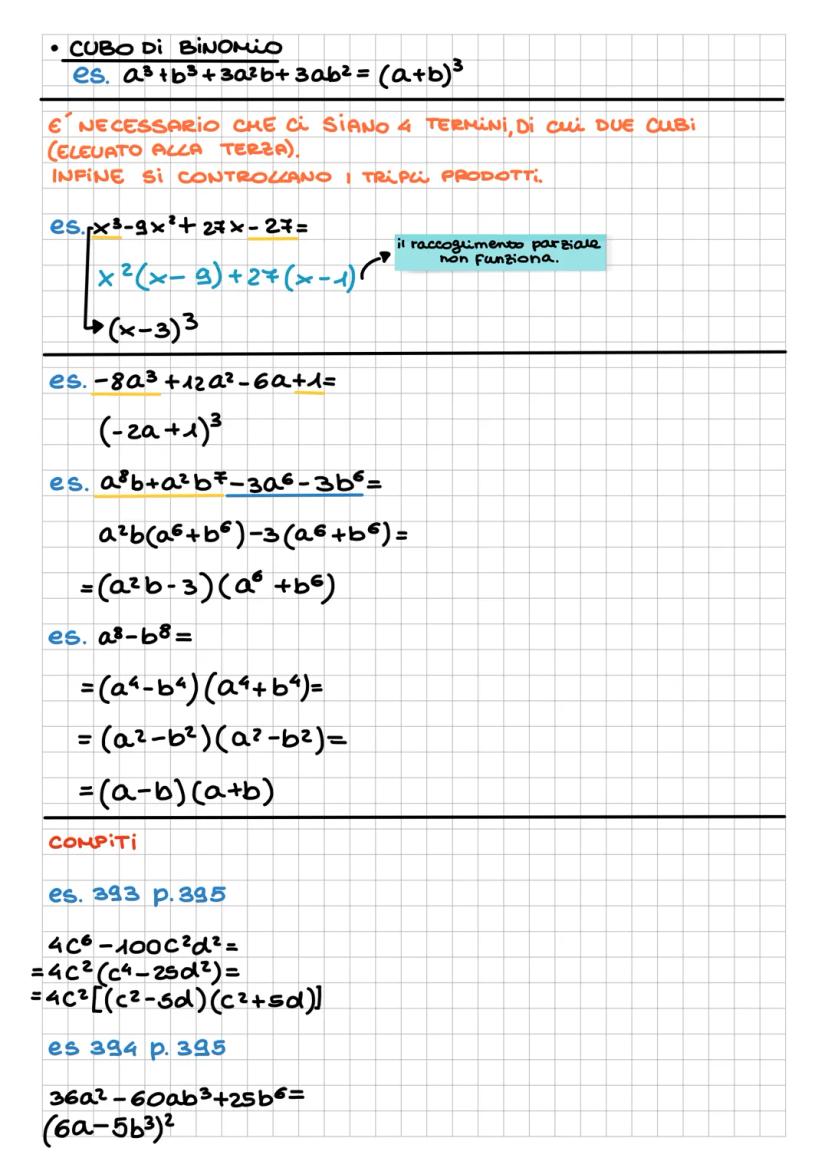 • CUBO Di BiNOMiO
es. a³+b³+3a²b+3ab²=(a+b)³
E´ NECESSARIO CHE Ci SiANO 4 TERMiNi, Di CUi DUE CUBi
(ELEVATO ALLA TERZA).
INFiNE Si CONTROLLANO I TRiPLi PRODOTTi.
es. x³-9x²+27x-27=
il raccoglimento parziale
non funziona.
x²(x-9)+27(x-1)
(x-3)³
es. -8a³+12a²-6a+1=
(-2a+1)³
es. a⁸b+a²b⁷-3a⁶-3b⁶=
a²b(a⁶+b⁶)-3(a⁶+b⁶)=
=(a²b-3)(a⁶+b⁶)
es. a⁸-b⁸=
=(a⁴-b⁴)(a⁴+b⁴)=
=(a²-b²)(a²-b²)=
=(a-b)(a+b)
COMPiTi
es. 393 p.395
4c⁶-100c²d²=
=4c²(c⁴-25d²)=
=4c²[(c²-5d)(c²+5d)]
es 394 p.395
36a²-60ab³+25b⁶=
(6a-5b³)²